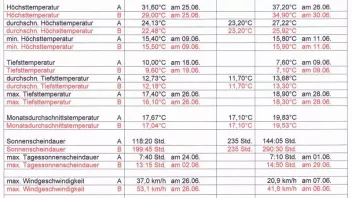 Höchsttemperatur A 31,60°C am 25.06. 37,20°C am 26.06.
Höchsttemperatur B 29,00°C am 25.06. 34,90°C am 30.06.
durchschn. Höchsttemperatur A 24,13°C 23,20°C 27,22°C
durchschn. Höchsttemperatur B 22,48°C 23,20°C 25,82°C
min. Höchsttemperatur A 15,40°C am 09.06. 15,80°C am 11.06.
min. Höchsttemperatur B 15,50°C am 09.06. 15,90°C am 11.06.
Tiefsttemperatur A 10,00°C am 18.06. 7,60°C am 09.06.
Tiefsttemperatur B 9,60°C am 19.06. 7,10°C am 09.06.
durchschn. Tiefsttemperatur A 12,73°C 11,70°C 13,68°C
durchschn. Tiefsttemperatur B 12,18°C 11,70°C 13,30°C
max. Tiefsttemperatur A 17,40°C am 26.06. 18,90°C am 28.06.
max. Tiefsttemperatur B 16,10°C am 26.06. 18,30°C am 28.06.
Monatsdurchschnittstemperatur A 17,67°C 17,10°C 19,83°C
Monatsdurchschnittstemperatur B 17,04°C 17,10°C 19,53°C
Sonnenscheindauer A 118:20 Std. 235 Std. 144:05 Std.
Sonnenscheindauer B 199:45 Std. 235 Std. 290:30 Std.
max. Tagessonnenscheindauer A 7:40 Std. am 24.06. 7:10 Std. am 01.06.
max. Tagessonnenscheindauer B 13:15 Std. am 02.06. 14:50 Std. am 29.06.
max. Windgeschwindigkeit A 37,0 km/h am 26.06. 20,9 km/h am 07.06.
max. Windgeschwindigkeit B 53,1 km/h am 26.06. 41,8 km/h am 06.06.